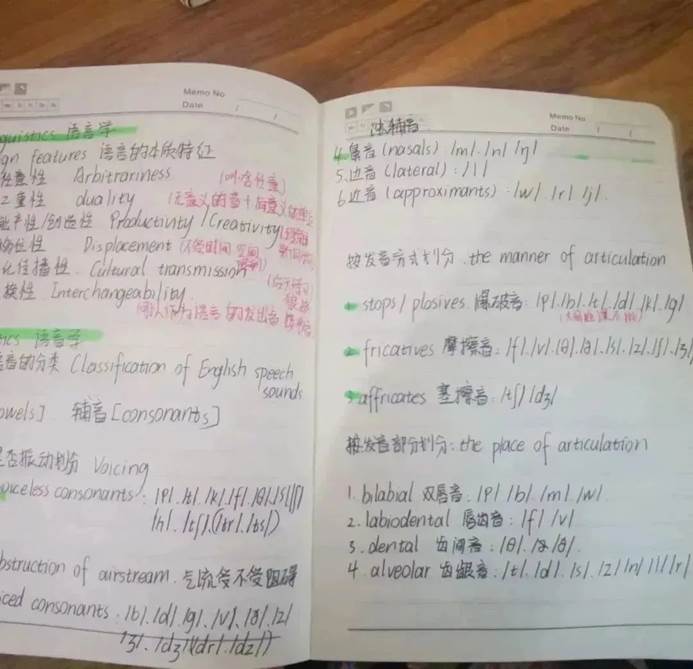 Memo No
Date / /
guistics 语言学
gn features 语言的本质特征
任意性 Arbitrariness (叫啥任意)
二重性 duality (无意义的音+有意义的
能产性/创造性 Productivity/Creativity
移位性 Displacement (不受时间空间
化传播性 Cultural transmission
换性 Interchangeability
tics 语音学
语音的分类 Classification of English speech
sounds
owels] 辅音[consonants]
是否振动划分 Voicing
voiceless consonants: /p/./t/./k/./f/./θ/./s/./ʃ/
/h/./tʃ/.(/tr/./ts/)
bstruction of airstream. 气流受不受阻碍
iced consonants: /b/./d/./g/./v/./ð/./z/
/ʒ/./dʒ/(/dr/./dz/)
Memo No
Date / /
浊辅音
4.鼻音(nasals) /m/./n/./ŋ/
5.边音(lateral): /l/
6.近音(approximants): /w/ /r/ /j/.
按发音方式划分. the manner of articulation
1. stops/plosives. 爆破音: /p/./b/./t/./d/./k/./g/
2. fricatives 摩擦音: /f/./v/./θ/./ð/./s/./z/./ʃ/./ʒ/
3. affricates 塞擦音: /tʃ/ /dʒ/
按发音部分划分: the place of articulation
1. bilabial 双唇音: /p/ /b/ /m/ /w/
2. labiodental 唇齿音: /f/ /v/
3. dental 齿间音: /θ/. /ð/
4. alveolar 齿龈音: /t/. /d/. /s/. /z/ /n/ /l/ /r/